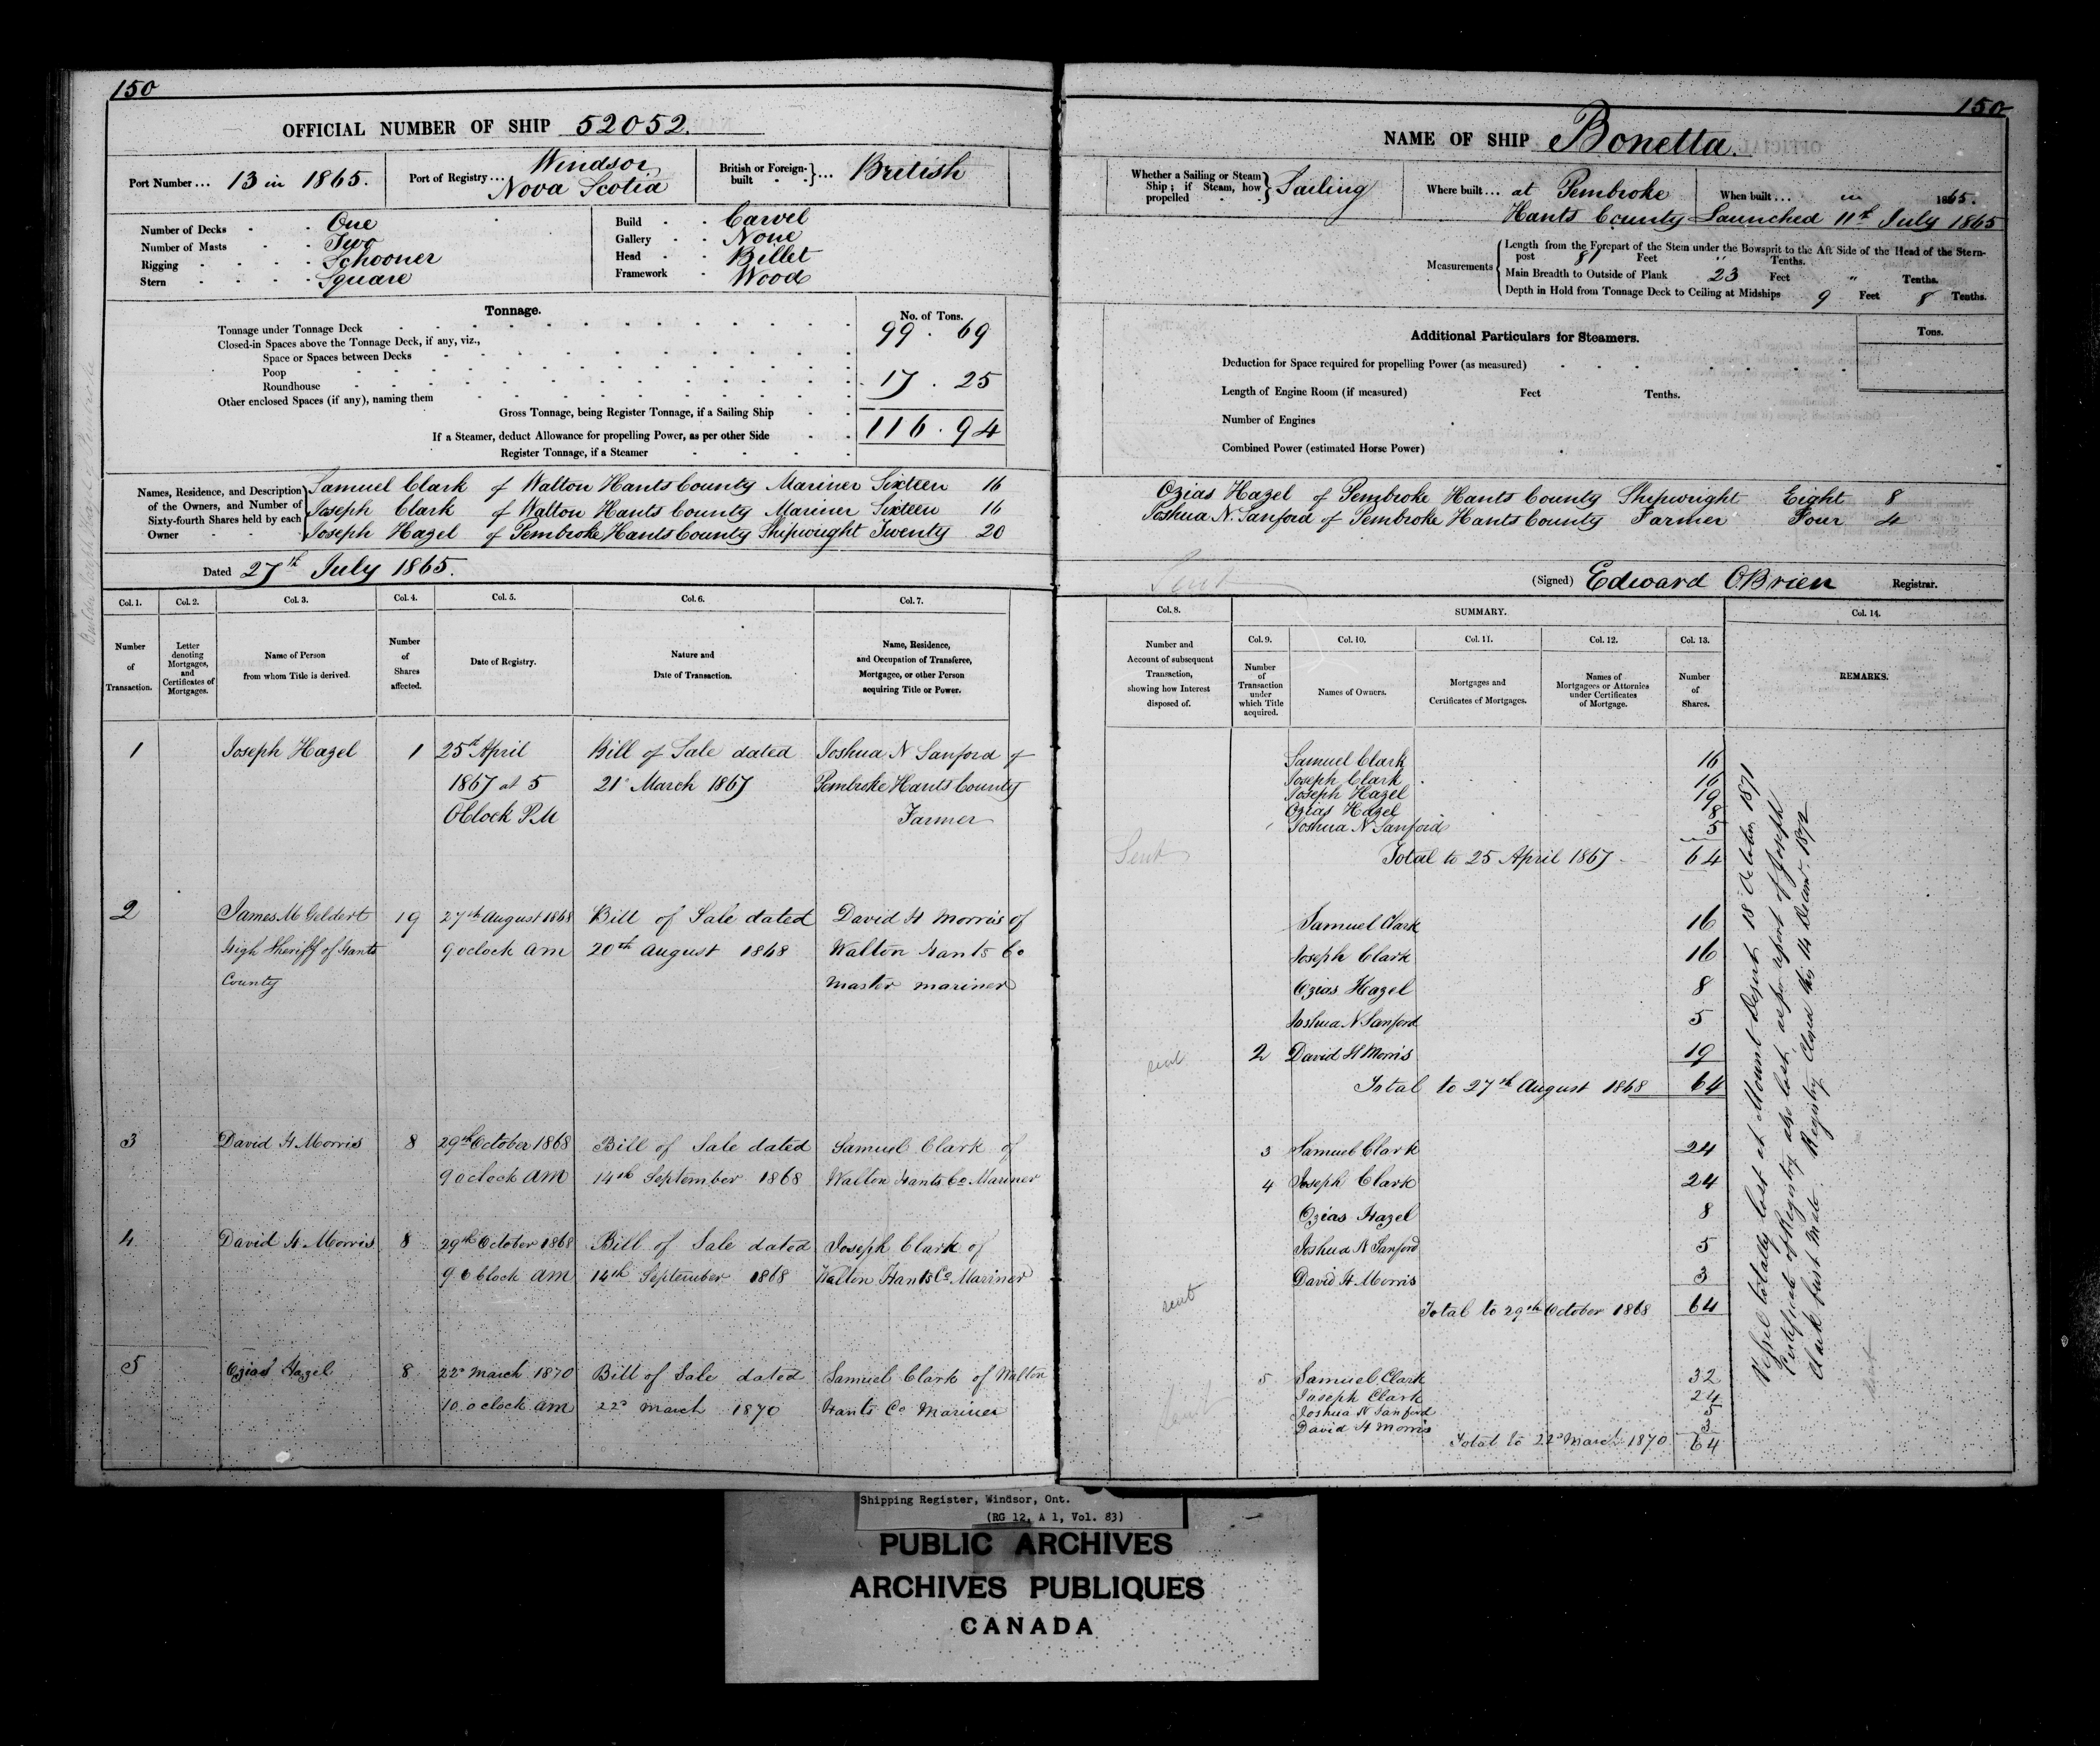 150
OFFICIAL NUMBER OF SHIP 52052.
Port Number ... 13 in 1865.
Port of Registry ... Windsor
Nova Scotia
British or Foreign-built ... British
Number of Decks One
Number of Masts Two
Rigging Schooner
Stern Square
Build Carvel
Gallery None
Head Billet
Framework Wood
Tonnage.
No. of Tons.
Tonnage under Tonnage Deck 99 . 69
Closed-in Spaces above the Tonnage Deck, if any, viz.,
Space or Spaces between Decks
Poop
Roundhouse 17 . 25
Other enclosed Spaces (if any), naming them
Gross Tonnage, being Register Tonnage, if a Sailing Ship
116 . 94
If a Steamer, deduct Allowance for propelling Power, as per other Side
Register Tonnage, if a Steamer
Names, Residence, and Description of the Owners, and Number of Sixty-fourth Shares held by each Owner
Samuel Clark of Walton Hants County Mariner Sixteen 16
Joseph Clark of Walton Hants County Mariner Sixteen 16
Joseph Hazel of Pembroke Hants County Shipwright Twenty 20
Dated 27th July 1865.
Col. 1. Col. 2. Col. 3. Col. 4. Col. 5. Col. 6. Col. 7.
Number of Transaction.
Letter denoting Mortgages, and Certificates of Mortgages.
Name of Person from whom Title is derived.
Number of Shares affected.
Date of Registry.
Nature and Date of Transaction.
Name, Residence, and Occupation of Transferee, Mortgagee, or other Person acquiring Title or Power.
1 Joseph Hazel 1 25th April Bill of Sale dated Joshua N Sanford of
1867 at 5 21st March 1867 Pembroke Hants County
OClock PM Farmer
2 James M Geldert 19 27th August 1868 Bill of Sale dated David H Morris of
High Sheriff of Hants 9 oclock am 20th August 1868 Walton Hants Co
County master mariner
3 David H Morris 8 29th October 1868 Bill of Sale dated Samuel Clark of
9 oclock am 14th September 1868 Walton Hants Co Mariner
4 David H Morris 8 29th October 1868 Bill of Sale dated Joseph Clark of
9 oclock am 14th September 1868 Walton Hants Co Mariner
5 Ozias Hazel 8 22d March 1870 Bill of Sale dated Samuel Clark of Walton
10 oclock am 22d March 1870 Hants Co Mariner
150
NAME OF SHIP Bonetta.
Whether a Sailing or Steam Ship; if Steam, how propelled Sailing
Where built ... at Pembroke
Hants County
When built ... in 1865.
Launched 11th July 1865
Measurements
Length from the Forepart of the Stem under the Bowsprit to the Aft Side of the Head of the Stern-
post 81 Feet " Tenths.
Main Breadth to Outside of Plank 23 Feet " Tenths.
Depth in Hold from Tonnage Deck to Ceiling at Midships 9 Feet 8 Tenths.
Additional Particulars for Steamers.
Tons.
Deduction for Space required for propelling Power (as measured)
Length of Engine Room (if measured) Feet Tenths.
Number of Engines
Combined Power (estimated Horse Power)
Ozias Hazel of Pembroke Hants County Shipwright Eight 8
Joshua N. Sanford of Pembroke Hants County Farmer Four 4
Sent
(Signed) Edward OBrien Registrar.
Col. 8. SUMMARY. Col. 14.
Col. 9. Col. 10. Col. 11. Col. 12. Col. 13.
Number and Account of subsequent Transaction, showing how Interest disposed of.
Number of Transaction under which Title acquired.
Names of Owners.
Mortgages and Certificates of Mortgages.
Names of Mortgagees or Attornies under Certificates of Mortgage.
Number of Shares.
REMARKS.
Samuel Clark 16
Joseph Clark 16
Joseph Hazel 19
Ozias Hazel 8
Joshua N Sanford 5
Sent Total to 25 April 1867 64
Samuel Clark 16
Joseph Clark 16
Ozias Hazel 8
Joshua N Sanford 5
sent 2 David H Morris 19
Total to 27th August 1868 64
3 Samuel Clark 24
4 Joseph Clark 24
Ozias Hazel 8
Joshua N Sanford 5
David H Morris 3
sent Total to 29th October 1868 64
5 Samuel Clark 32
Joseph Clark 24
Joshua N Sanford 5
David H Morris 3
Sent Total to 22d March 1870 64
Vessel totally lost at Mount Desert 18 October 1871
Certificate of Registry also lost as per report of Joseph
Clark first Mate. Registry Closed this 14 Decemr 1872
sent
Shipping Register, Windsor, Ont.
(RG 12, A 1, Vol. 83)
PUBLIC ARCHIVES
ARCHIVES PUBLIQUES
CANADA